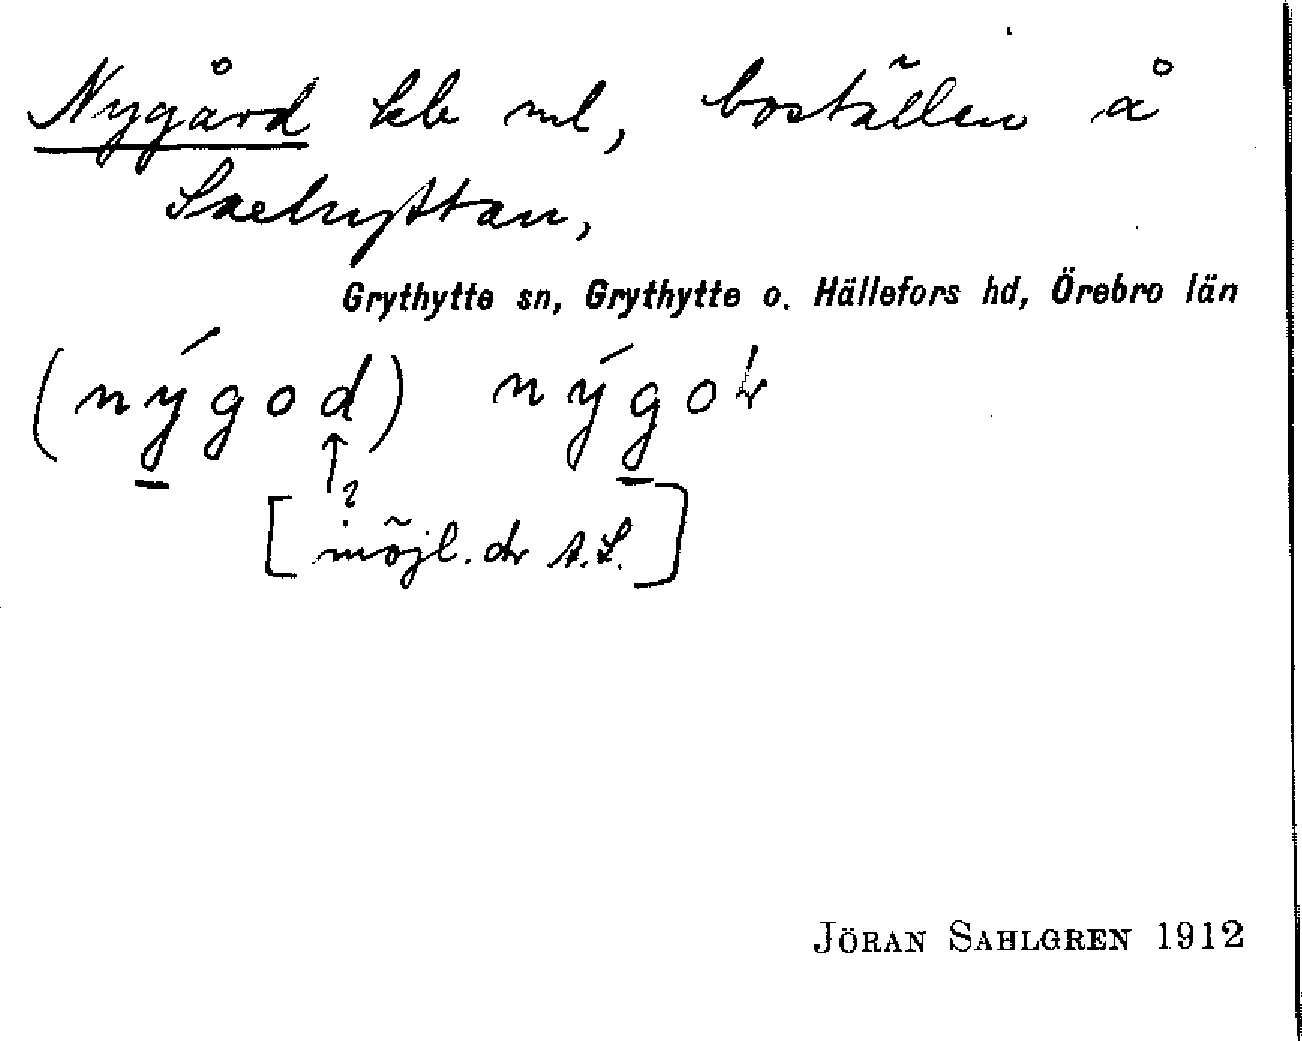 Nygård kb ml, boställen å
Saxhyttan,
Grythytte sn, Grythytte o. Hällefors hd, Örebro län
(nýgod) nýgo
↑?
[möjl. dr s.S.]
JÖRAN SAHLGREN 1912